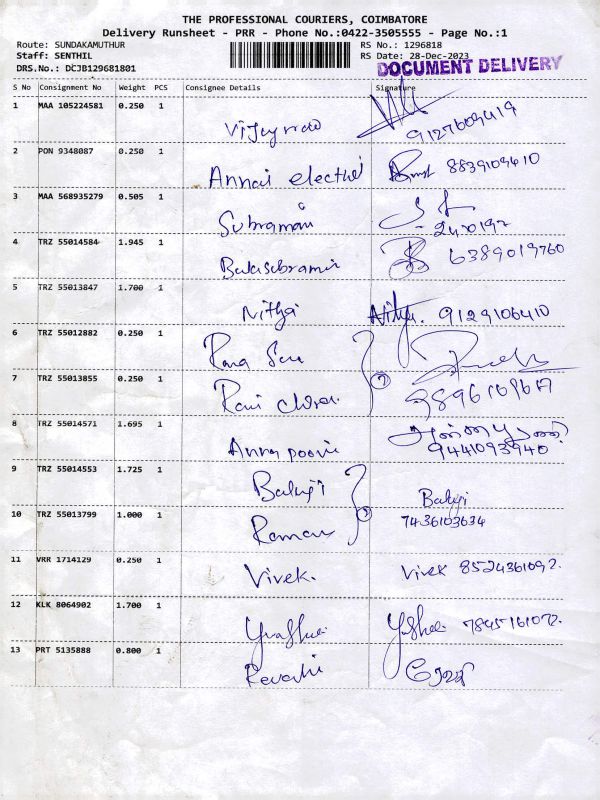 THE PROFESSIONAL COURIERS, COIMBATORE
Delivery Runsheet - PRR - Phone No.:0422-3505555 - Page No.:1
Route: SUNDAKAMUTHUR RS No.: 1296818
Staff: SENTHIL RS Date: 28-Dec-2023
DRS.No.: DCJB129681801 DOCUMENT DELIVERY
S No Consignment No Weight PCS Consignee Details Signature
1 MAA 105224581 0.250 1
9127609419
2 PON 9348087 0.250 1
Annai 8839109610
3 MAA 568935279 0.505 1
Subramani
2470197
4 TRZ 55014584 1.945 1
Balasubramani 6389019760
5 TRZ 55013847 1.700 1
Nithya Nithya. 9129106410
6 TRZ 55012882 0.250 1
7 TRZ 55013855 0.250 1
8 TRZ 55014571 1.695 1
Annapoorni 9441093940
9 TRZ 55014553 1.725 1
Balaji Balaji
10 TRZ 55013799 1.000 1
Raman 7436103634
11 VRR 1714129 0.250 1
Vivek. Vivek 8524361092.
12 KLK 8064902 1.700 1
7845161072.
13 PRT 5135888 0.800 1
Revathi